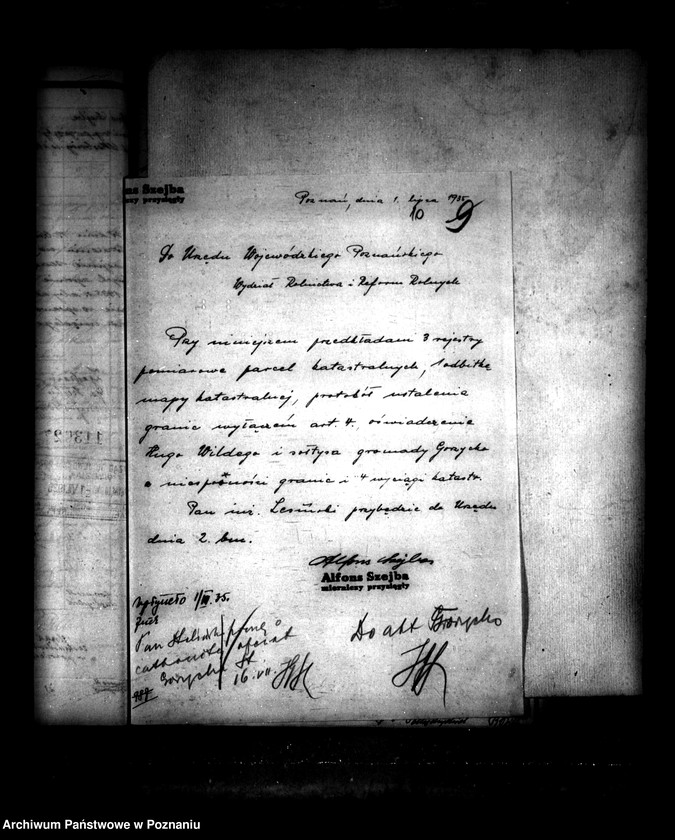 ns Szejba
zy przysięgły
Poznań, dnia 1. lipca 1935
10 9
Do Urzędu Wojewódzkiego Poznańskiego
Wydział Rolnictwa i Reform Rolnych
Przy niniejszem przedkładam 3 rejestry
pomiarowe parcel katastralnych, 1 odbitkę
mapy katastralnej, protokół ustalenia
granic wyłączeń art. 4., oświadczenie
Hugo Wildego i sołtysa gromady Gorzycko
o niespórności granic i 4 wyciągi katastr.
Pan inż. Lesiński przybędzie do Urzędu
dnia 2. bm.
Alfons Szejba
Alfons Szejba
mierniczy przysięgły
Wpłynęło 1/VII 35.
Pan
Gorzycko
16.VII
Do akt Gorzycko
Archiwum Państwowe w Poznaniu